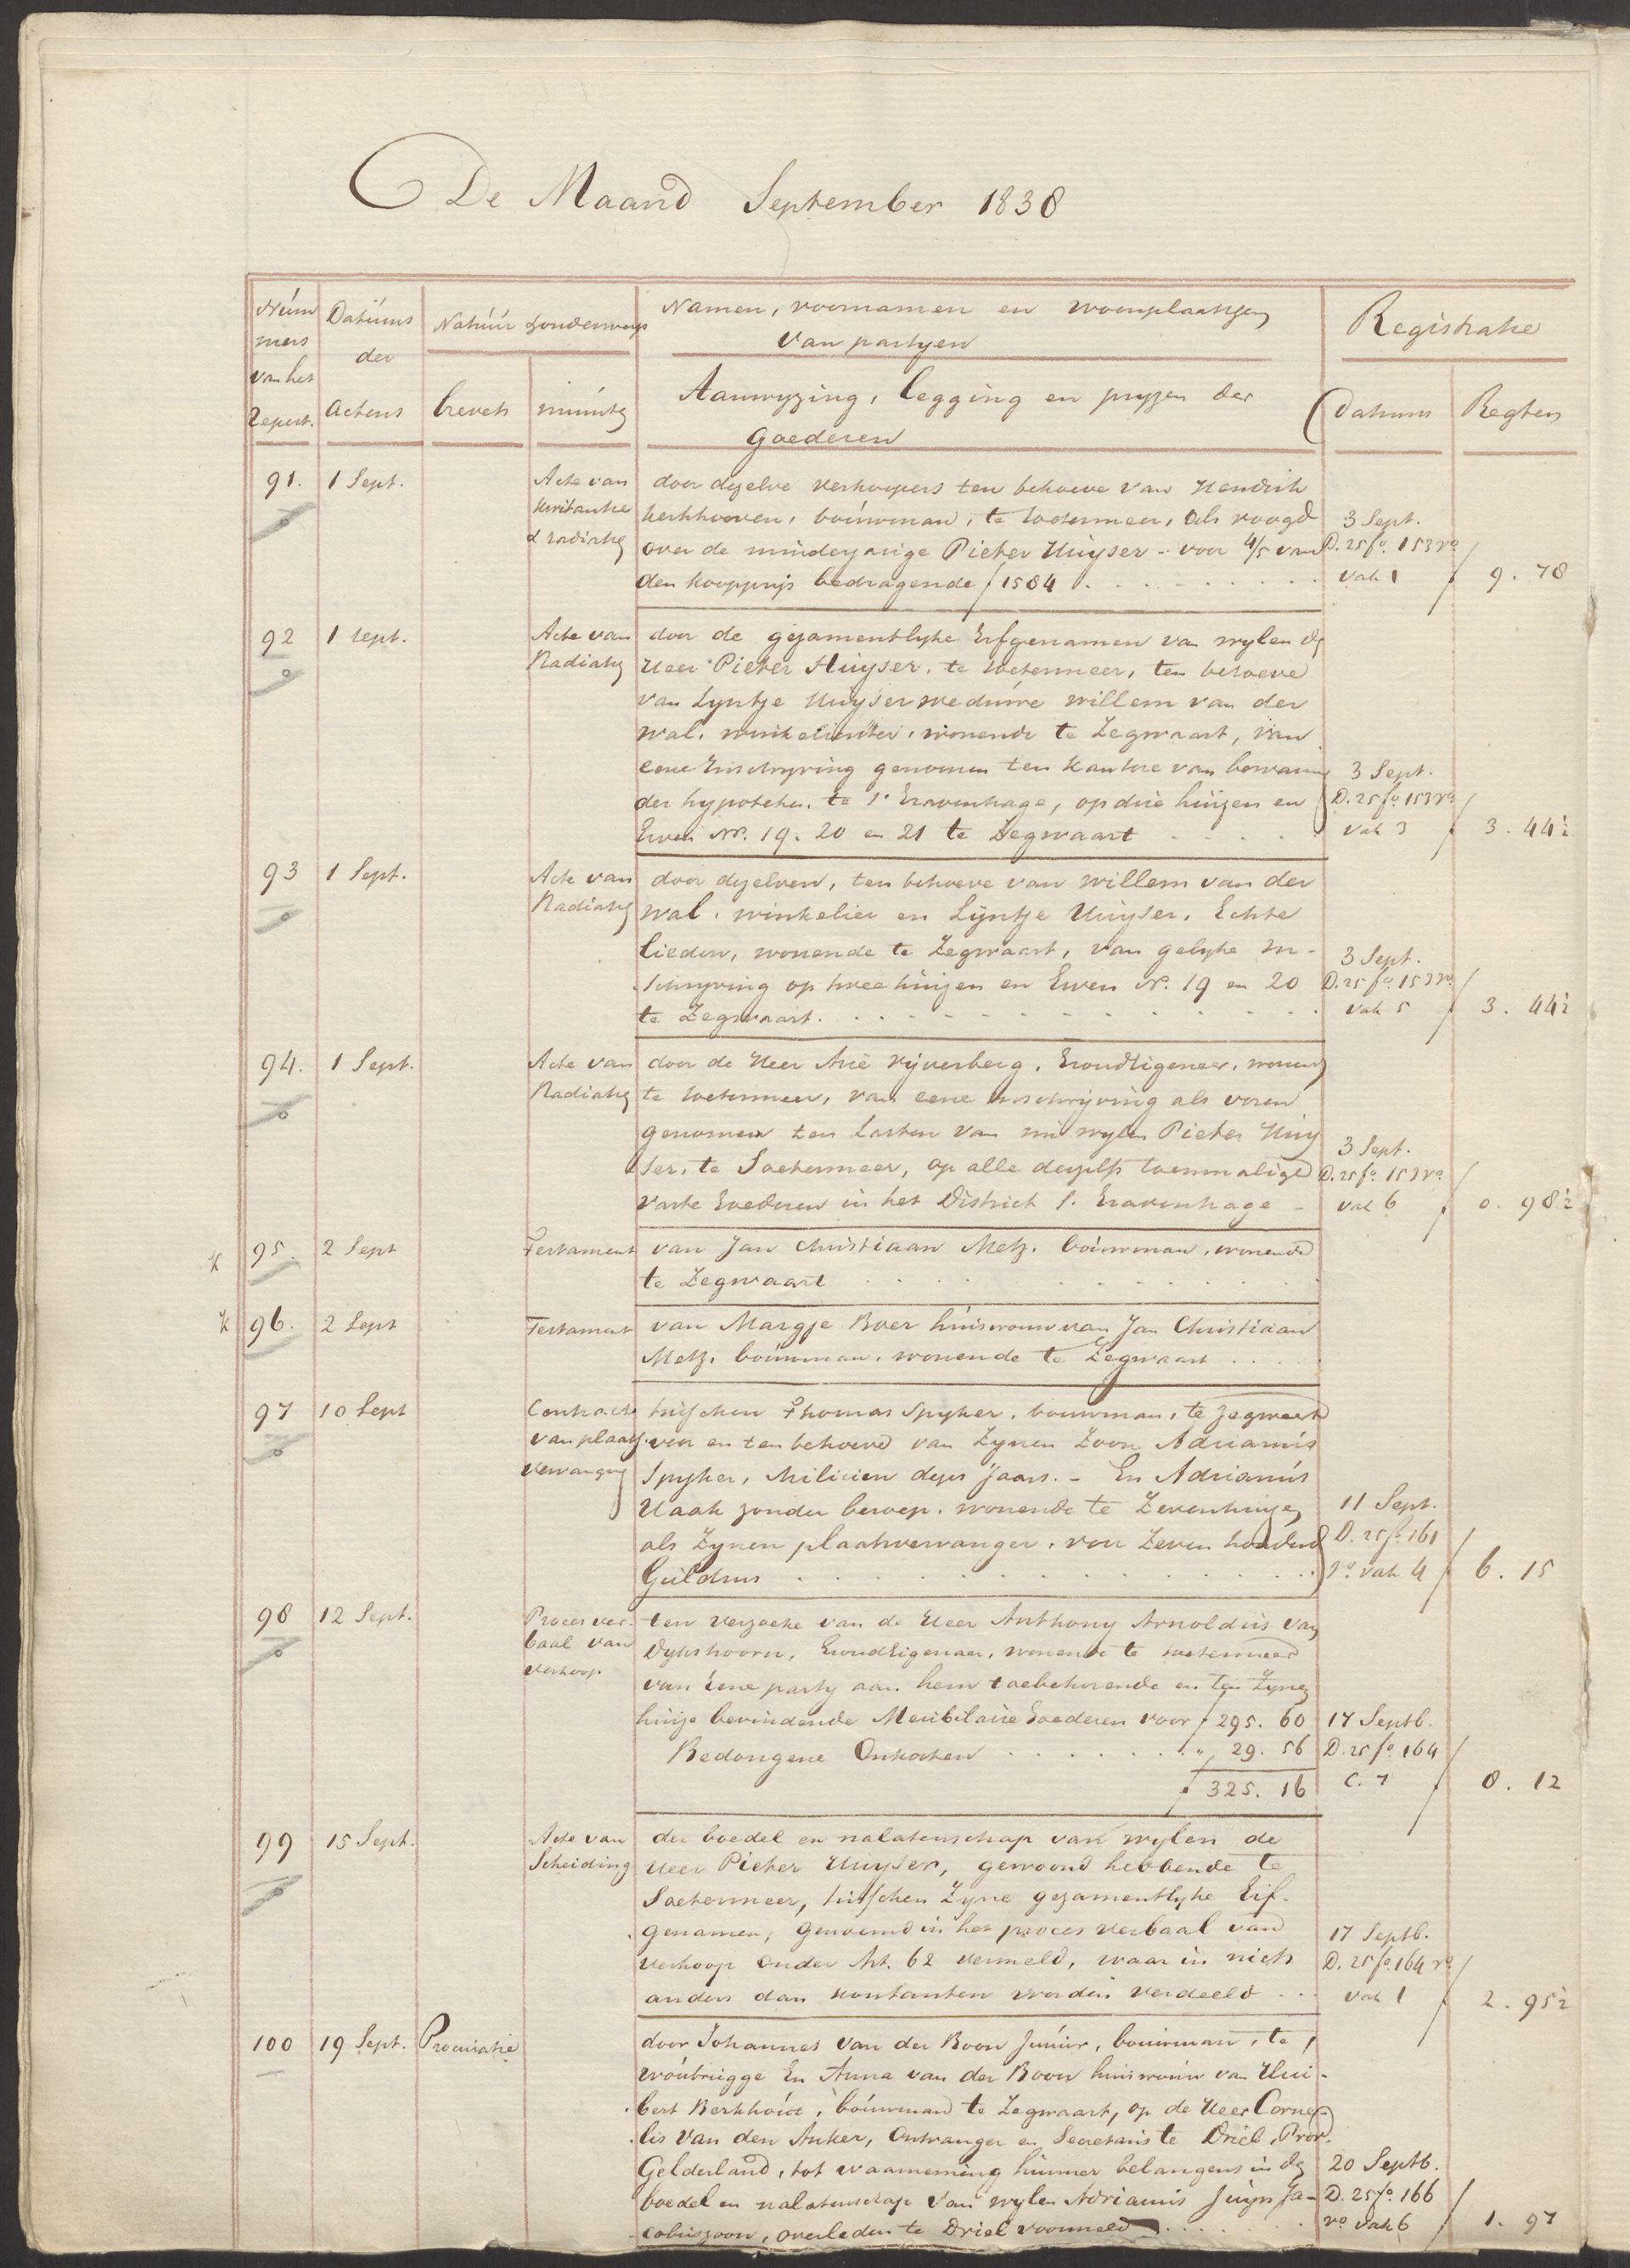 De Maand September 1838
Núm
mers
van het
Repert.
Datúms
der
actens
Natúúr & onderwerp
brevets
minúte
Namen, voornamen en woonplaatsen
van partyen
Aanwyzing, legging en pryzen der
Goederen
Registratie
Datums
Regten
91. 1 Sept.
Acte van
kwitantie
& radiatie
door dezelve verkoopers ten behoeve van Hendrik
Kerkhoven, boúwman, te Soetermeer, als voogd
over de minderjarige Pieter Huijser - voor 4/5 van
den koopprijs bedragende ƒ 1584
3 Sept.
D. 25 fo. 153 ro
vak 1
ƒ 9. 78
92 1 Sept.
Acte van
Radiatie
door de gezamentlyke Erfgenamen van wylen de
Heer Pieter Huijser, te Soetermeer, ten behoeve
van Lyntje Huijser weduwe willem van der
Wal, winkelierster, wonende te Zegwaart, van
eene Inschryving genomen ten kantore van bewaring
der hypoteken te s' Gravenhage, op drie huijzen en
Erven No. 19. 20 en 21 te Zegwaart
3 Sept.
D. 25 fo. 153 ro
vak 3
ƒ 3. 44½
93 1 Sept.
Acte van
Radiatie
door dezelven, ten behoeve van willem van der
Wal, winkelier en Lijntje Huijser, Echte
lieden, wonende te Zegwaart, van gelyke in-
schryving op twee huijzen en Erven No. 19 en 20
te Zegwaart.
3 Sept.
D. 25 fo. 153 ro.
vak 5
ƒ 3. 44½
94. 1 Sept.
Acte van
Radiatie
door de Heer Arie Vijverberg, Grondeigenaar, wonende
te Soetermeer, van eene inschrijving als voren
genomen ten lasten van nu wylen Pieter Huij
ser, te Soetermeer, op alle deszelfs toenmalige
vaste Goederen in het District s. Gravenhage
3 Sept.
D. 25 fo. 153 ro
vak 6
ƒ 0. 98½
95. 2 Sept
Testament
van Jan Christiaan Metz, boúwman, wonende
te Zegwaart
96. 2 Sept
Testament
van Margje Boer húisvrouw van Jan Christiaan
Metz, boúwman, wonende te Zegwaart
97 10 Sept
Contract
van plaats
vervanging
tusschen Thomas Spyker, bouwman, te Zegwaart
voor en ten behoeve van Zynen Zoon Adrianús
Spyker, Milicien dezes Jaars. - En Adrianús
Haak zonder beroep, wonende te Zevenhuizen
als Zynen plaatsvervanger, voor Zeven honderd
Guldens
11 Sept.
D. 25 fo. 161
ro. vak 4
ƒ 6. 15
98 12 Sept.
Proces ver-
baal van
verkoop.
ten verzoeke van de Heer Anthony Arnoldus van
Dykshoorn, Grondeigenaar, wonende te Soetermeer
van eene party aan hem toebehorende en ten Zynen
huize bevindende Meubilaire Goederen voor ƒ 295. 60
Bedongene Onkosten " 29. 56
ƒ 325. 16
17 Septb.
D. 25 fo. 164
C. 7
ƒ 8. 12
99 15 Sept.
Acte van
Scheiding
der boedel en nalatenschap van wylen de
Heer Pieter Huijser, gewoond hebbende te
Soetermeer, tusschen Zyne gezamentlyke Erf-
genamen, genoemd in het proces verbaal van
verkoop onder Art. 62 vermeld, waar in niets
anders dan kontanten worden verdeeld
17 Septb.
D. 25 fo. 164 ro
vak 1
ƒ 2. 95½
100 19 Sept. Procuratie
door Johannes van der Boon Junior, bouwman, te
Woúbrugge En Anna van der Boon huisvrouw van Hui-
bert Berkhout, boúwman te Zegwaart, op de Heer Corne-
lis van den Anker, Ontvanger en Secretaris te Driel, Prov.
Gelderland, tot waarneming hunner belangens in de
boedel en nalatenschap van wylen Adrianus Juijn Ja-
cobuszoon, overleden te Driel voormeld
20 Septb.
D. 25 fo. 166
vo vak 6
ƒ 1. 97